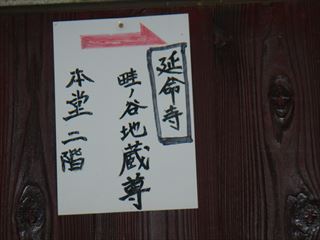 延命寺
畦ノ谷地蔵尊
本堂二階